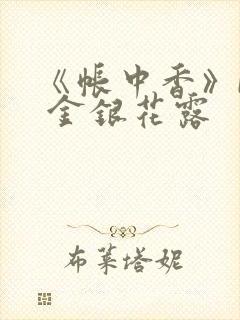 《帐中香》
金银花露
布莱塔妮